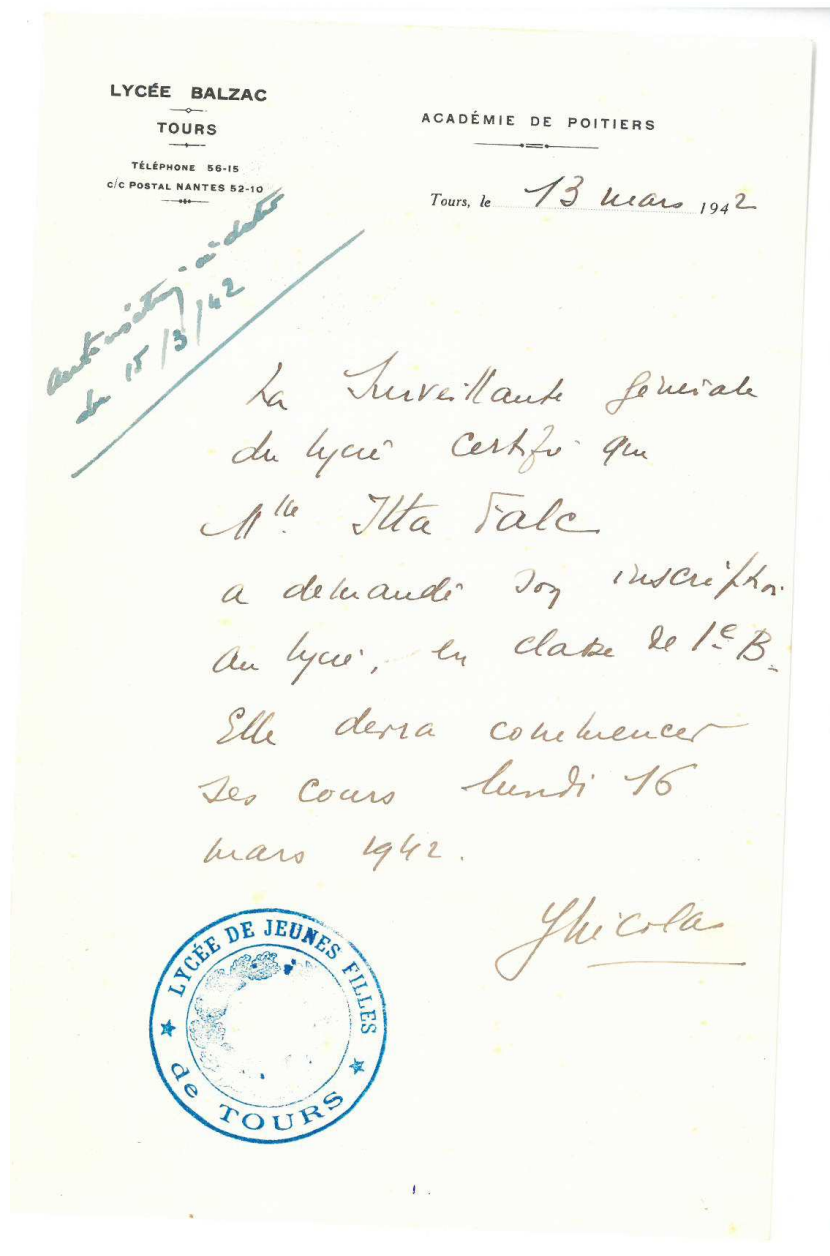 LYCÉE BALZAC
TOURS
TÉLÉPHONE 56-15
c/c POSTAL NANTES 52-10
ACADÉMIE DE POITIERS
Tours, le 13 mars 1942
autorisation à dater
du 15/3/42
La Surveillante générale
du lycée certifie que
Mlle Itta Falc
a demandé son inscription
au lycée, en classe de 1e B.
Elle devra commencer
ses cours lundi 16
mars 1942.
YNicolas
LYCÉE DE JEUNES FILLES
de TOURS